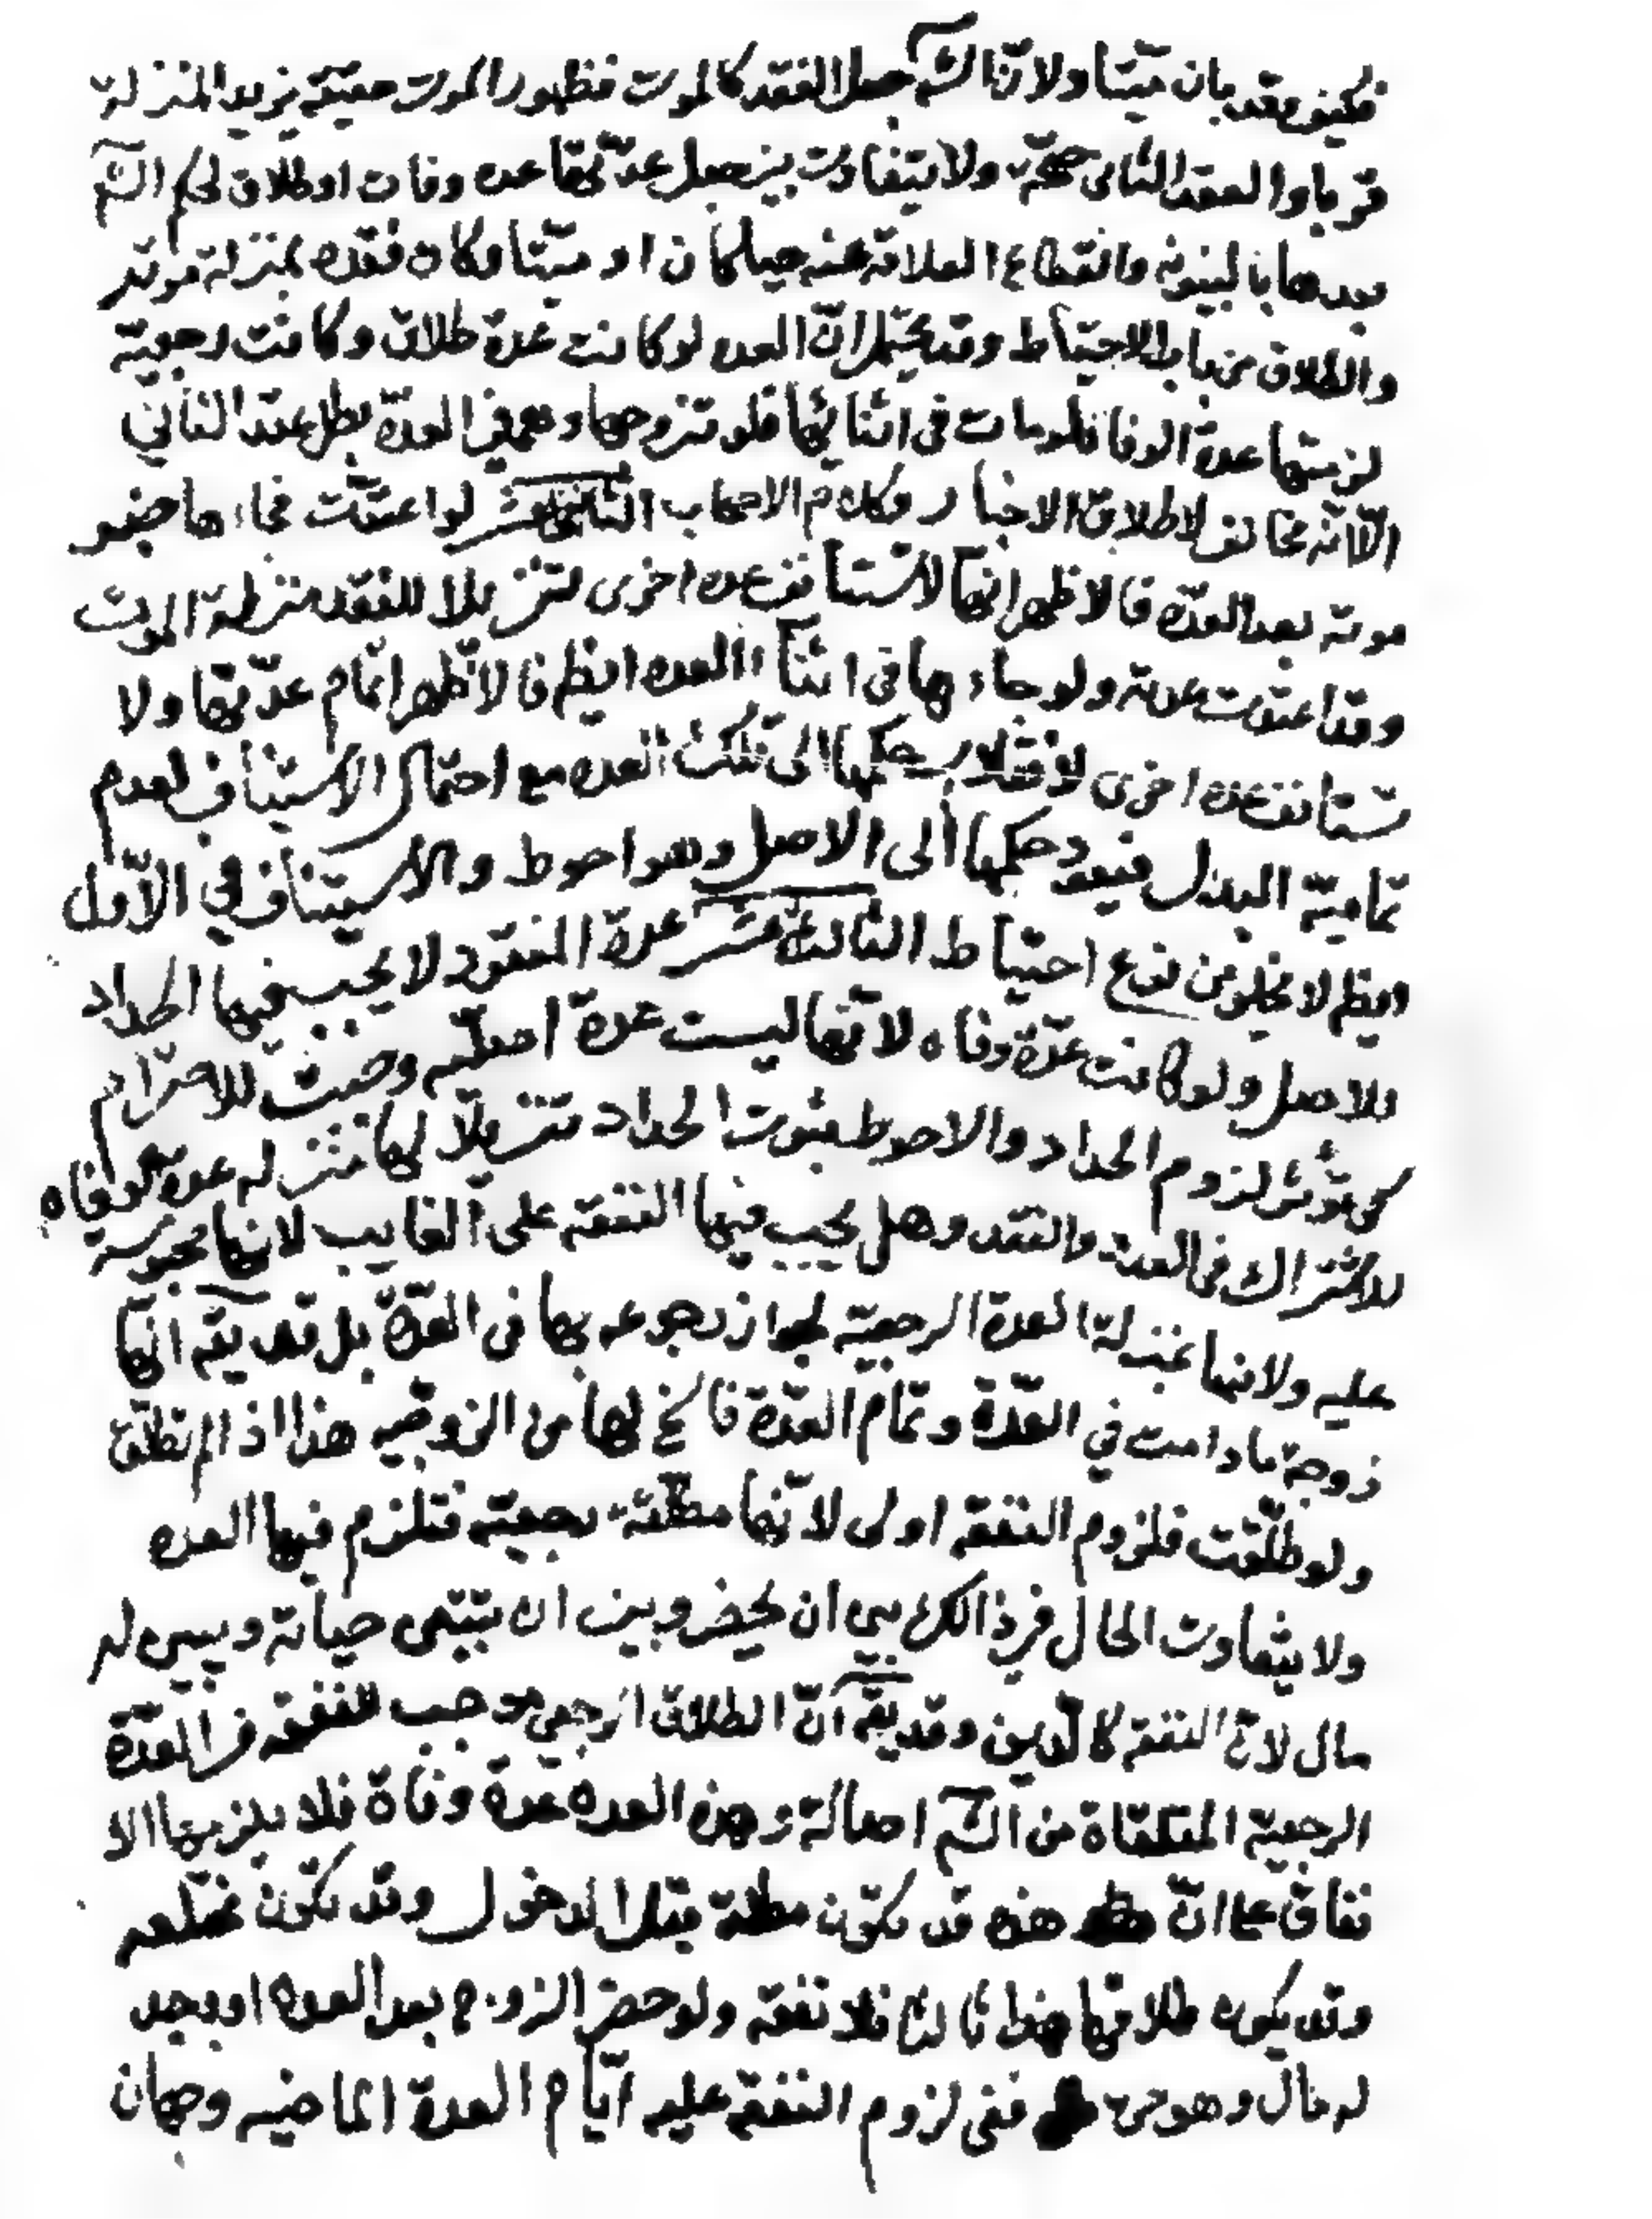 فكيف وقد بان ميّتا ولانّ الشّ جعل الفقد كالموت فظهور الموت حقيقة يزيد المنزلة
قربا والعقد الثانى صحّة ولا يتفاوت بين جعل عدّتها عده وفات او طلاق لحكم الشّ
بعدها بالبينونه وانقطاع العلاقة عنه حيا كان او ميّتا وكان فقده بمنزلة موته
والطلاق من باب الاحتياط وقد يحتمل انّ العده لو كانت عدة طلاق وكانت رجعية
لزمتها عدة الوفا فلو مات فى اثنائها فلو تزوجها وهي في العدّة بطل عقد الثاني
الّا انّه مخالف لاطلاق الاخبار وكلام الاصحاب الثانى عشر لو اعتدّت فجاءها خبر
موته بعد العدّه فالاظهر انّها لا تستانف عده اخرى لتنزيلا للفقد منزلة الموت
وقد اعتدت عدته ولو جاءها فى اثناء العده ايظ فالاظهر اتمام عدّتها ولا
تستانف عده اخرى لانقلاب حكمها الى تلك العده مع احتمال الاستيناف لعدم
تمامية البدل فيعود حكمها الى الاصل وهو احوط والاستيناف في الاوّل
ايظ لا يخلو من نوع احتياط الثالث عشر عدة المفقود لا يجب فيها الحداد
للاصل ولو كانت عدّة وفاه لانّها ليست عدة اصليّه وضعت للاحترام
كى تؤثر لزوم الحداد والاحوط ثبوت الحداد تنزيلا لها منزله عدة الوفاه
للاشتراك فى العدة والفقد وهل يجب فيها النفقه على الغايب لانها محبوسة
عليه ولانها بمنزلة العدة الرجعية لجواز رجوعه بها فى العدّة بل قد يقه انّها
زوجة ما دامت في العدّة وتمام العدّة فاسخ لها من الزوجيه هذا اذ الم تطلق
ولو طلّقت فلزوم النفقه اولى لانّها مطلقة رجعيّة فتلزم فيها العده
ولا يتفاوت الحال في ذالك بين ان يحضر وبين ان يتبيّن حياته ويبين له
مال لانّ النفقه كالدّين وقد يقه انّ الطلاق الرجعى موجب للنفقه فى العدّة
الرجعية المتلقاة من الشّ اصالة وهذه العده عدة وفاة فلا يلزمها الا
نفاق على انّ هذه قد تكون مطلقة قبل الدخول وقد تكون مختلعه
وقد يكون طلاقها هذا ثالثا فلا نفقه ولو حضر الزوج بعد العده او وجد
له مال وهو حى ففى لزوم النفقة عليه ايّام العدة الماضيه وجهان